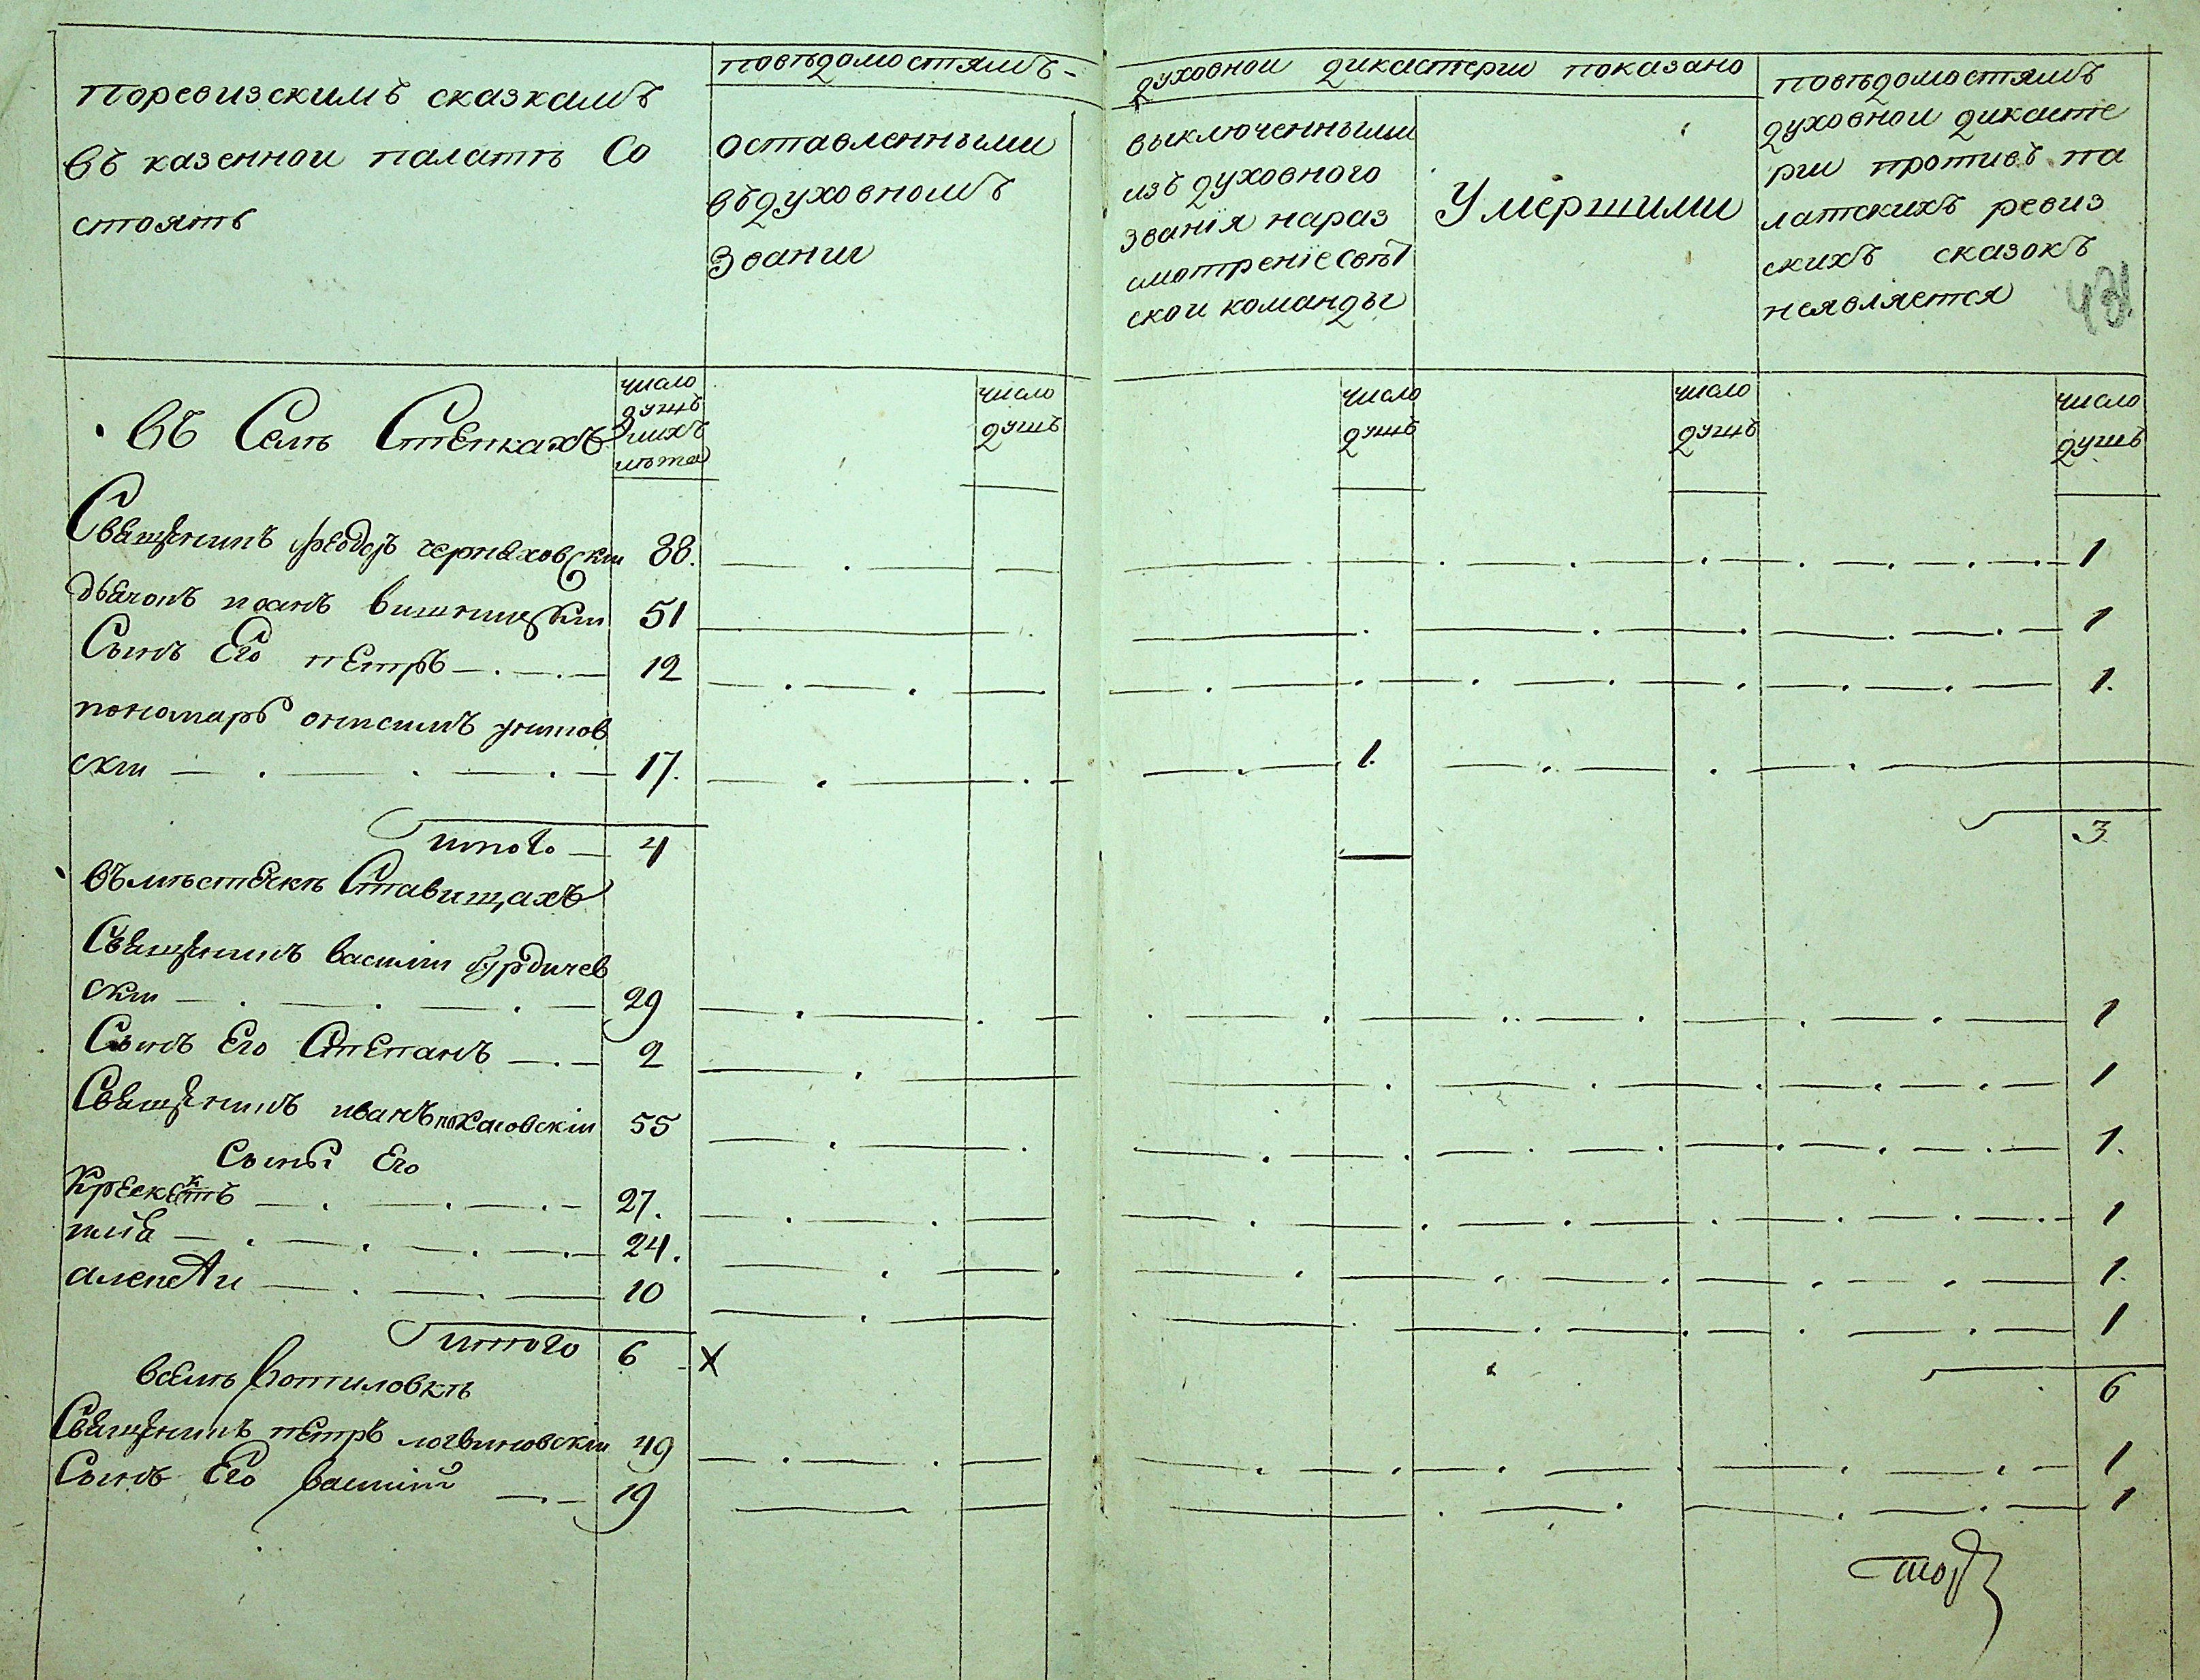 поревизскимъ сказкамъ
въ казеннои палатѣ Со
стоятъ
повѣдомостямъ-
оставленными
въдуховномъ
Звании
духовнои дикастерии показано
выключенными
изъ духовного
званія нараз
смотреніе свѣт
скои команды
Умершими
повѣдомостямъ
духовнои дикасте
рии противъ па
латскихъ ревиз
скихъ сказокъ
неявляется
въ Селѣ Стенкахъ
число
душъ
число
душъ
число
душъ
число
душъ
число
душъ
Священикъ Феодоръ черняховскии 88. 1
дьячокъ иоанъ вишницкии 51 1
Сынъ Его петръ 12 1.
пономарь онисимъ
скии 17. 1.
итого 4 3
въмѣстечкѣ Ставищахъ
Священикъ василии бурдичев
скии 29 1
Сынъ Его Степанъ 2 1
Священикъ иванъ 55 1.
Сыны Его
27. 1
илиа 24. 1.
алексеи 10 1
итого 6 х 6
вселѣ
Священикъ петръ логвиновскіи 49 1
Сынъ Его василій 19 1